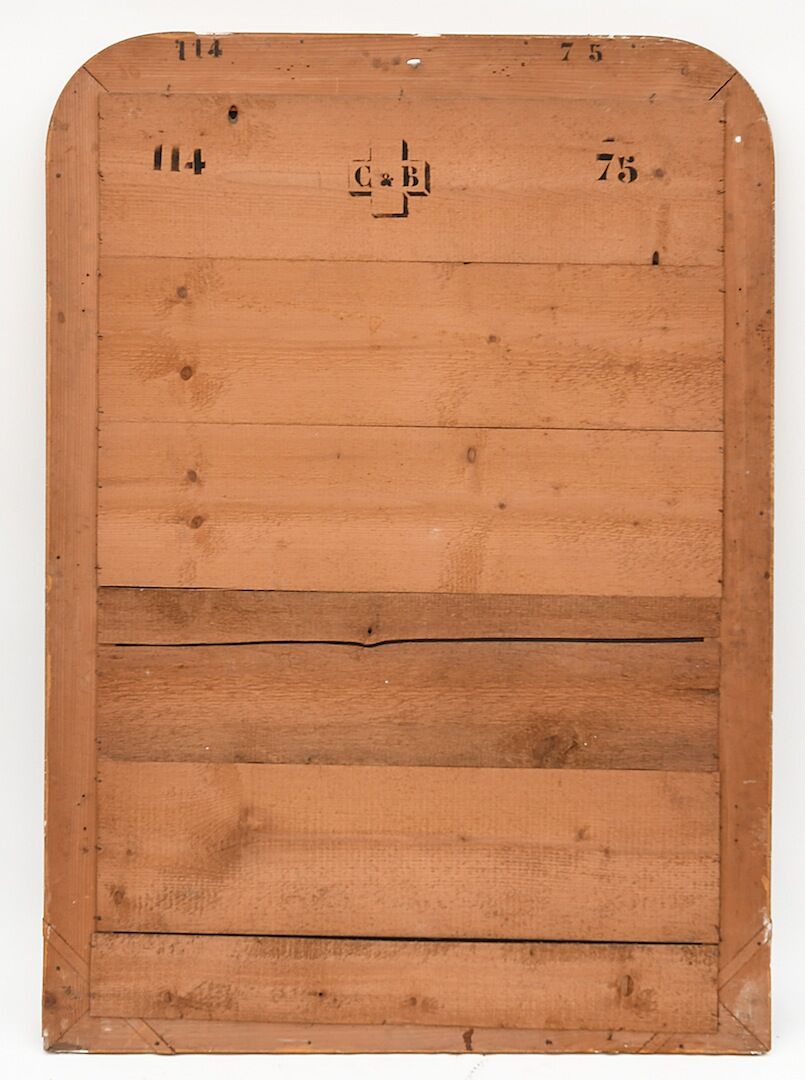 114 75
114 C & B 75